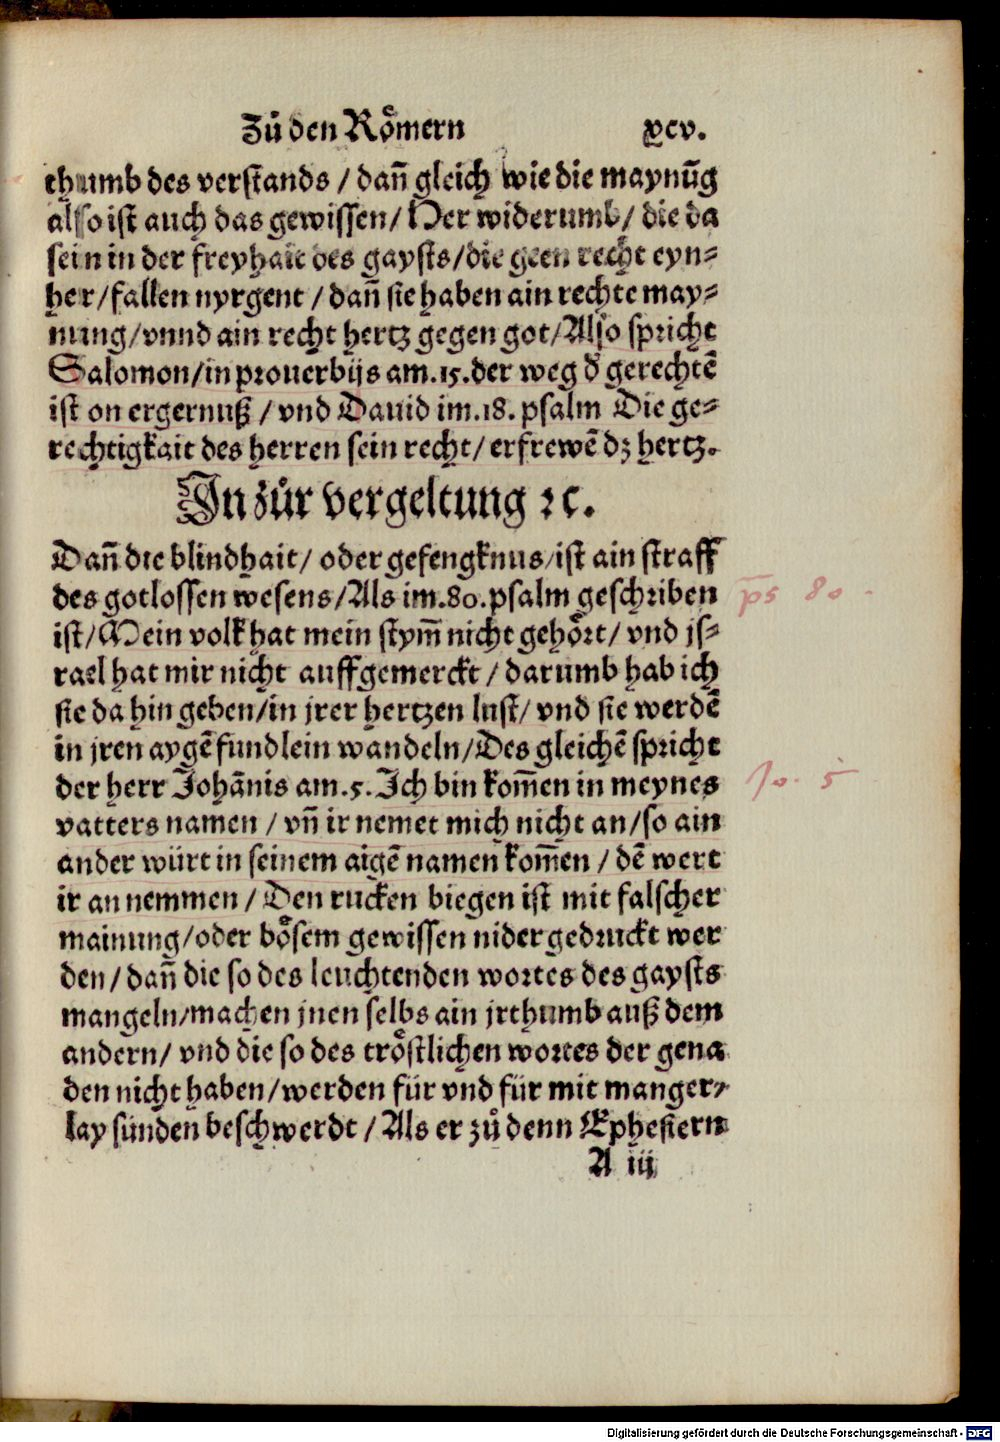 Zů den Rômern xcv.
thumb des verstands / dañ gleich wie die maynūg
also ist auch das gewissen / Her widerumb / die da
sein in der freyhait des gaysts / die geen recht eyn⸗
her / fallen nyrgent / dañ sie haben ain rechte may⸗
nung / vnnd ain recht hertz gegen got / Also spricht
Salomon / in prouerbijs am .15. der weg d̄ gerechtē
ist on ergernuß / vnd Dauid im .18. psalm Die ge⸗
rechtigkait des herren sein recht / erfrewē dz hertz.
In zůr vergeltung ꝛc.
Dañ die blindhait / oder gefengknus / ist ain straff
des gotlossen wesens / Als im .80. psalm geschriben
ps 80.
ist / Mein volk hat mein stym̄ nicht gehôrt / vnd js⸗
rael hat mir nicht auffgemerckt / darumb hab ich
sie da hin geben / in jrer hertzen lust / vnd sie werdē
in jren aygē fundlein wandeln / Des gleichē spricht
der herr Johānis am .5. Ich bin kom̄en in meynes
Jo. 5
vatters namen / vñ ir nemet mich nicht an / so ain
ander würt in seinem aigē namen kom̄en / dē wert
ir an nemmen / Den rucken biegen ist mit falscher
mainung / oder bôsem gewissen nider gedruckt wer
den / dañ die so des leuchtenden wortes des gaysts
mangeln / machen jnen selbs ain jrthumb auß dem
andern / vnd die so des trôstlichen wortes der gena
den nicht haben / werden für vnd für mit manger⸗
lay sünden beschwerdt / Als er zů denn Ephesiern
A iij
Digitalisierung gefördert durch die Deutsche Forschungsgemeinschaft - DFG